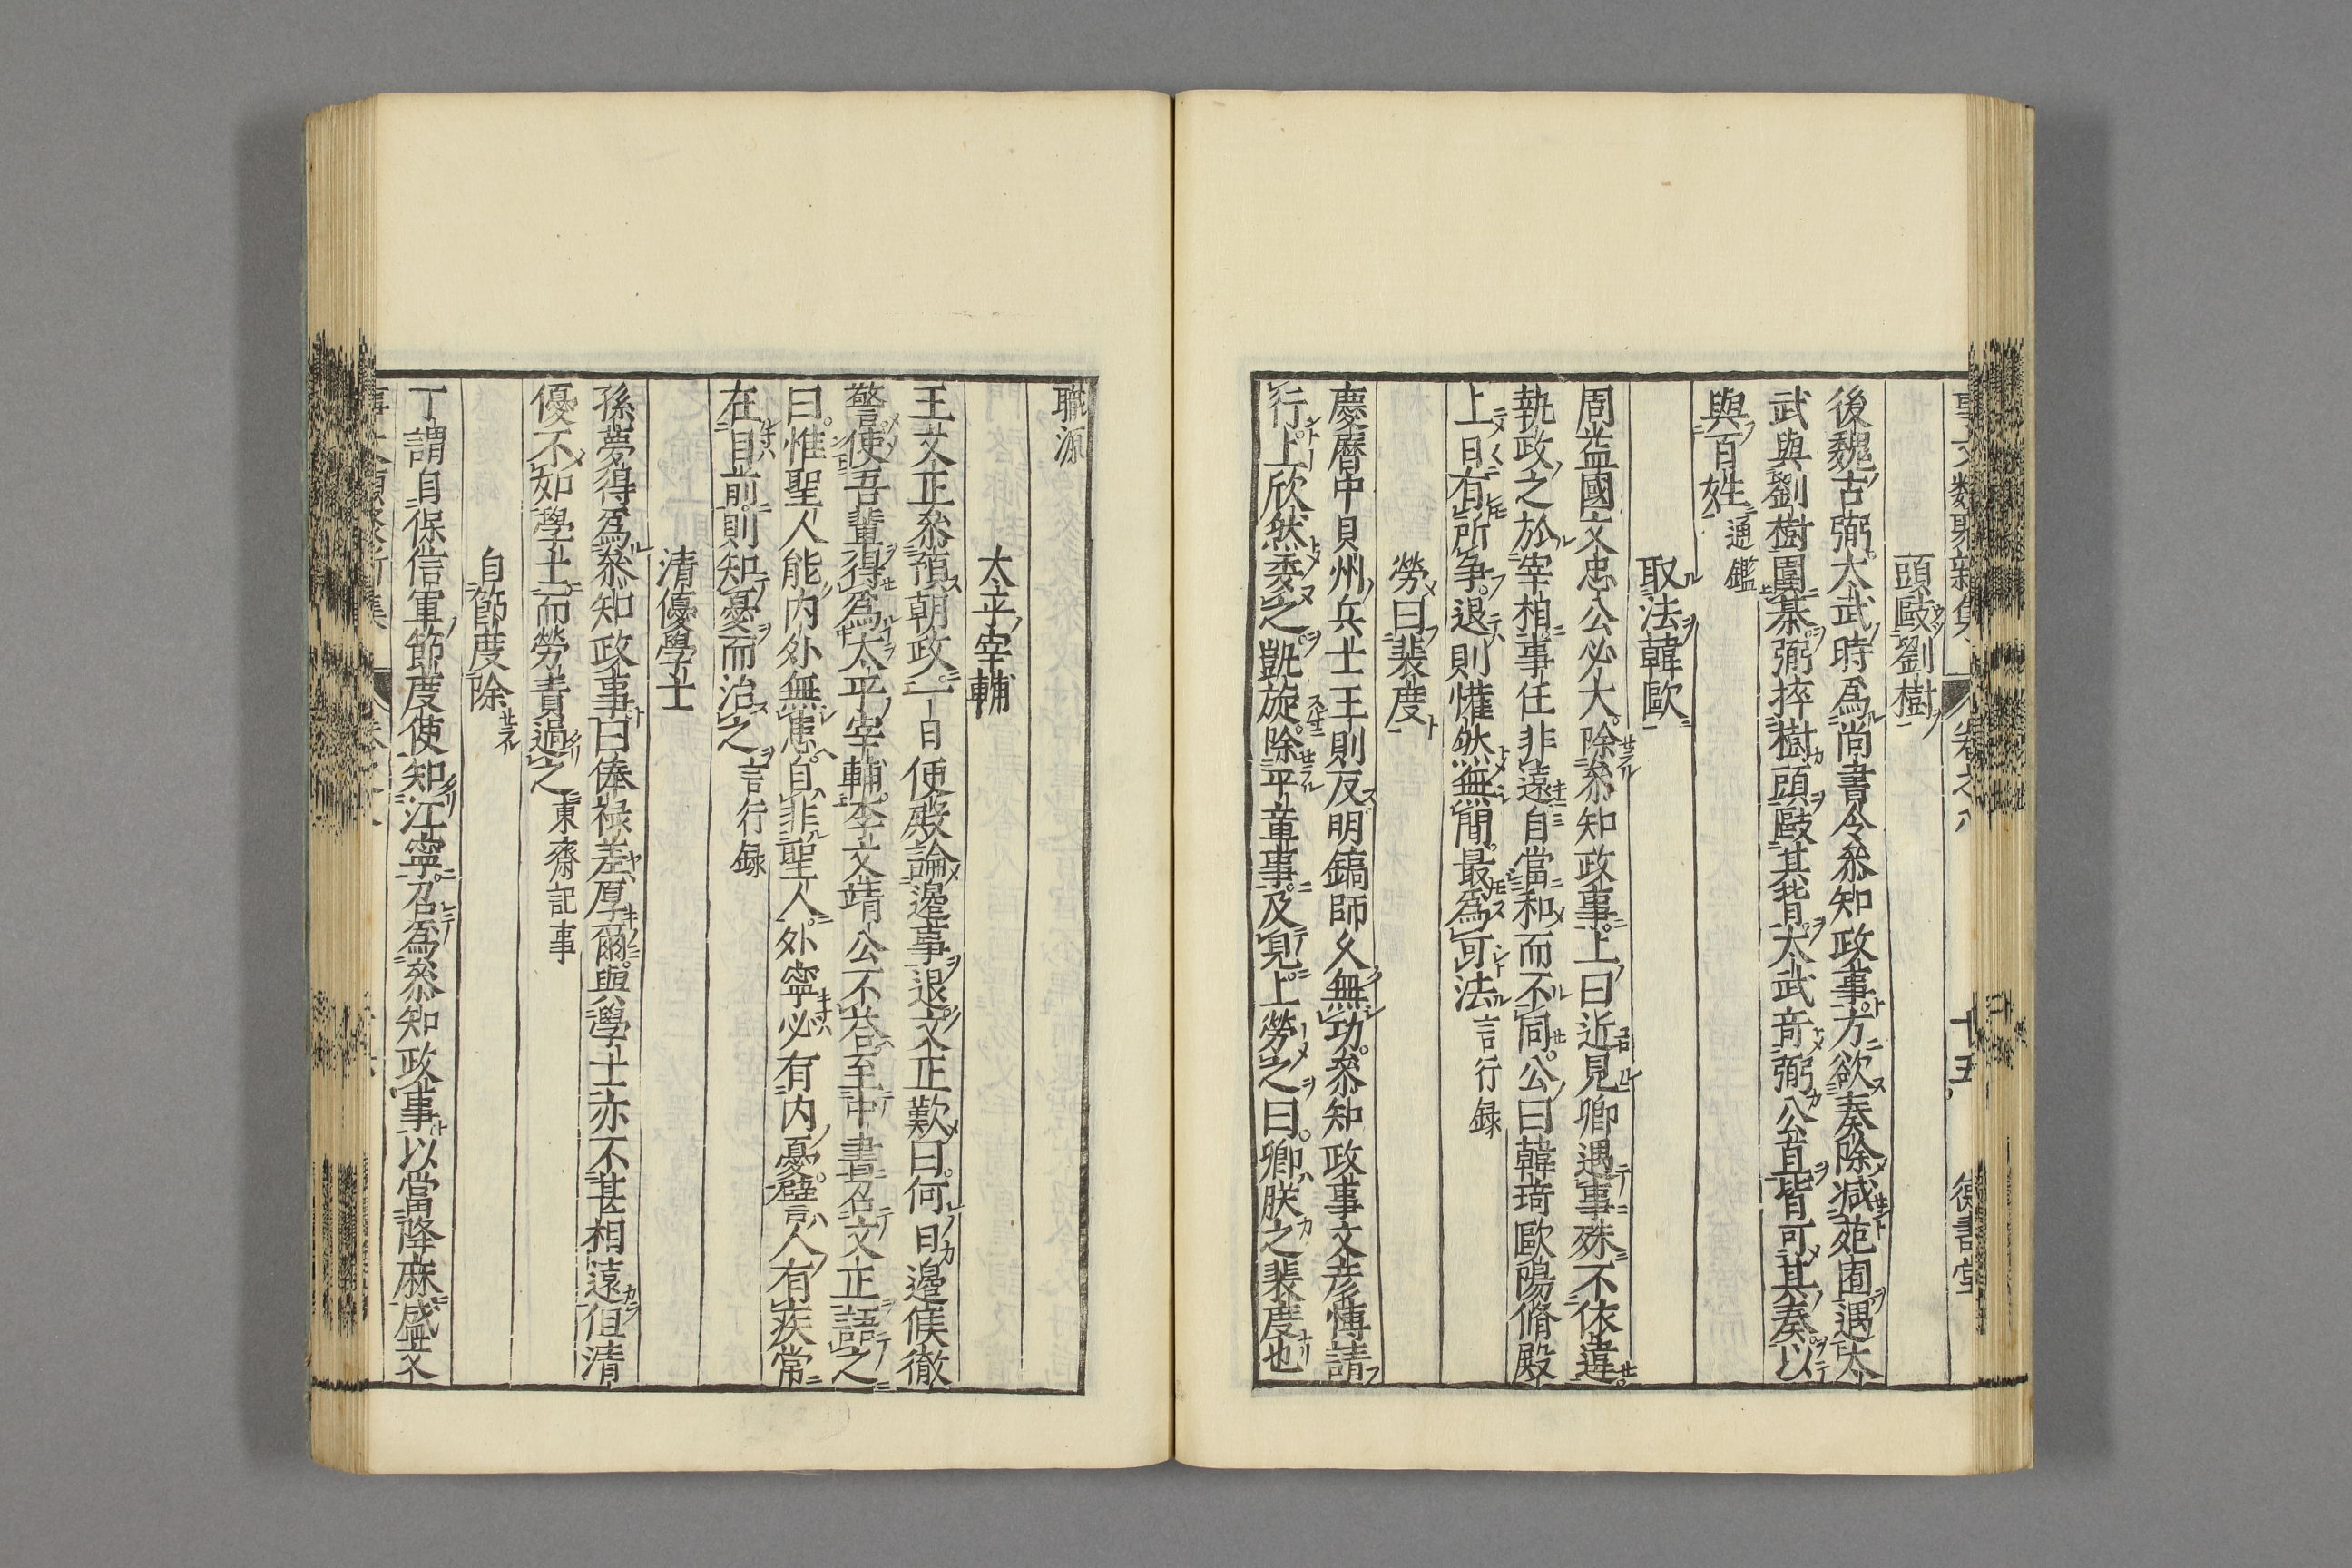 頭敺劉樹
後魏古弼太武時爲尚書令叅知政事方欲奏除減苑囿遇太
武與劉樹圍棊弼捽樹頭敺其背太武竒弼公直皆可其奏以
與百姓通鑑
取法韓歐
周益國文忠公必大除叅知政事上曰近見卿遇事殊不依違
執政之於宰相事任非遠自當和而不同公曰韓琦歐陽脩殿
上日有所争退則懽然無間最爲可法言行録
勞曰裴度
慶曆中貝州兵士王則反明鎬師久無功叅知政事文彦愽請
行上欣然委之凱旋除平章事及見上勞之曰卿朕之裴度也
職源
太平宰輔
王文正叅預朝政一日便殿論邊事退文正歎曰何日邊候徹
警使吾輩得爲太平宰輔李文靖公不荅至中書召文正語之
曰惟聖人能内外無患自非聖人外寧必有内憂譬人有疾常
在目前則知憂而治之言行録
清優學士
孫夢得爲叅知政事曰俸禄差厚爾與學士亦不甚相遠但清
優不如學士而勞責過之東齋記事
自節度除
丁謂自保信軍節度使知江寧召爲叅知政事以當降麻盛文